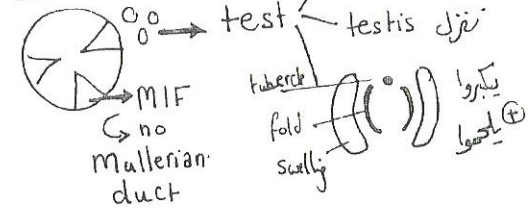 test.
testis تنزل
MIF
no
Mullerian.
duct
tubercle
fold
swellig
يكبروا
+
يلحموا